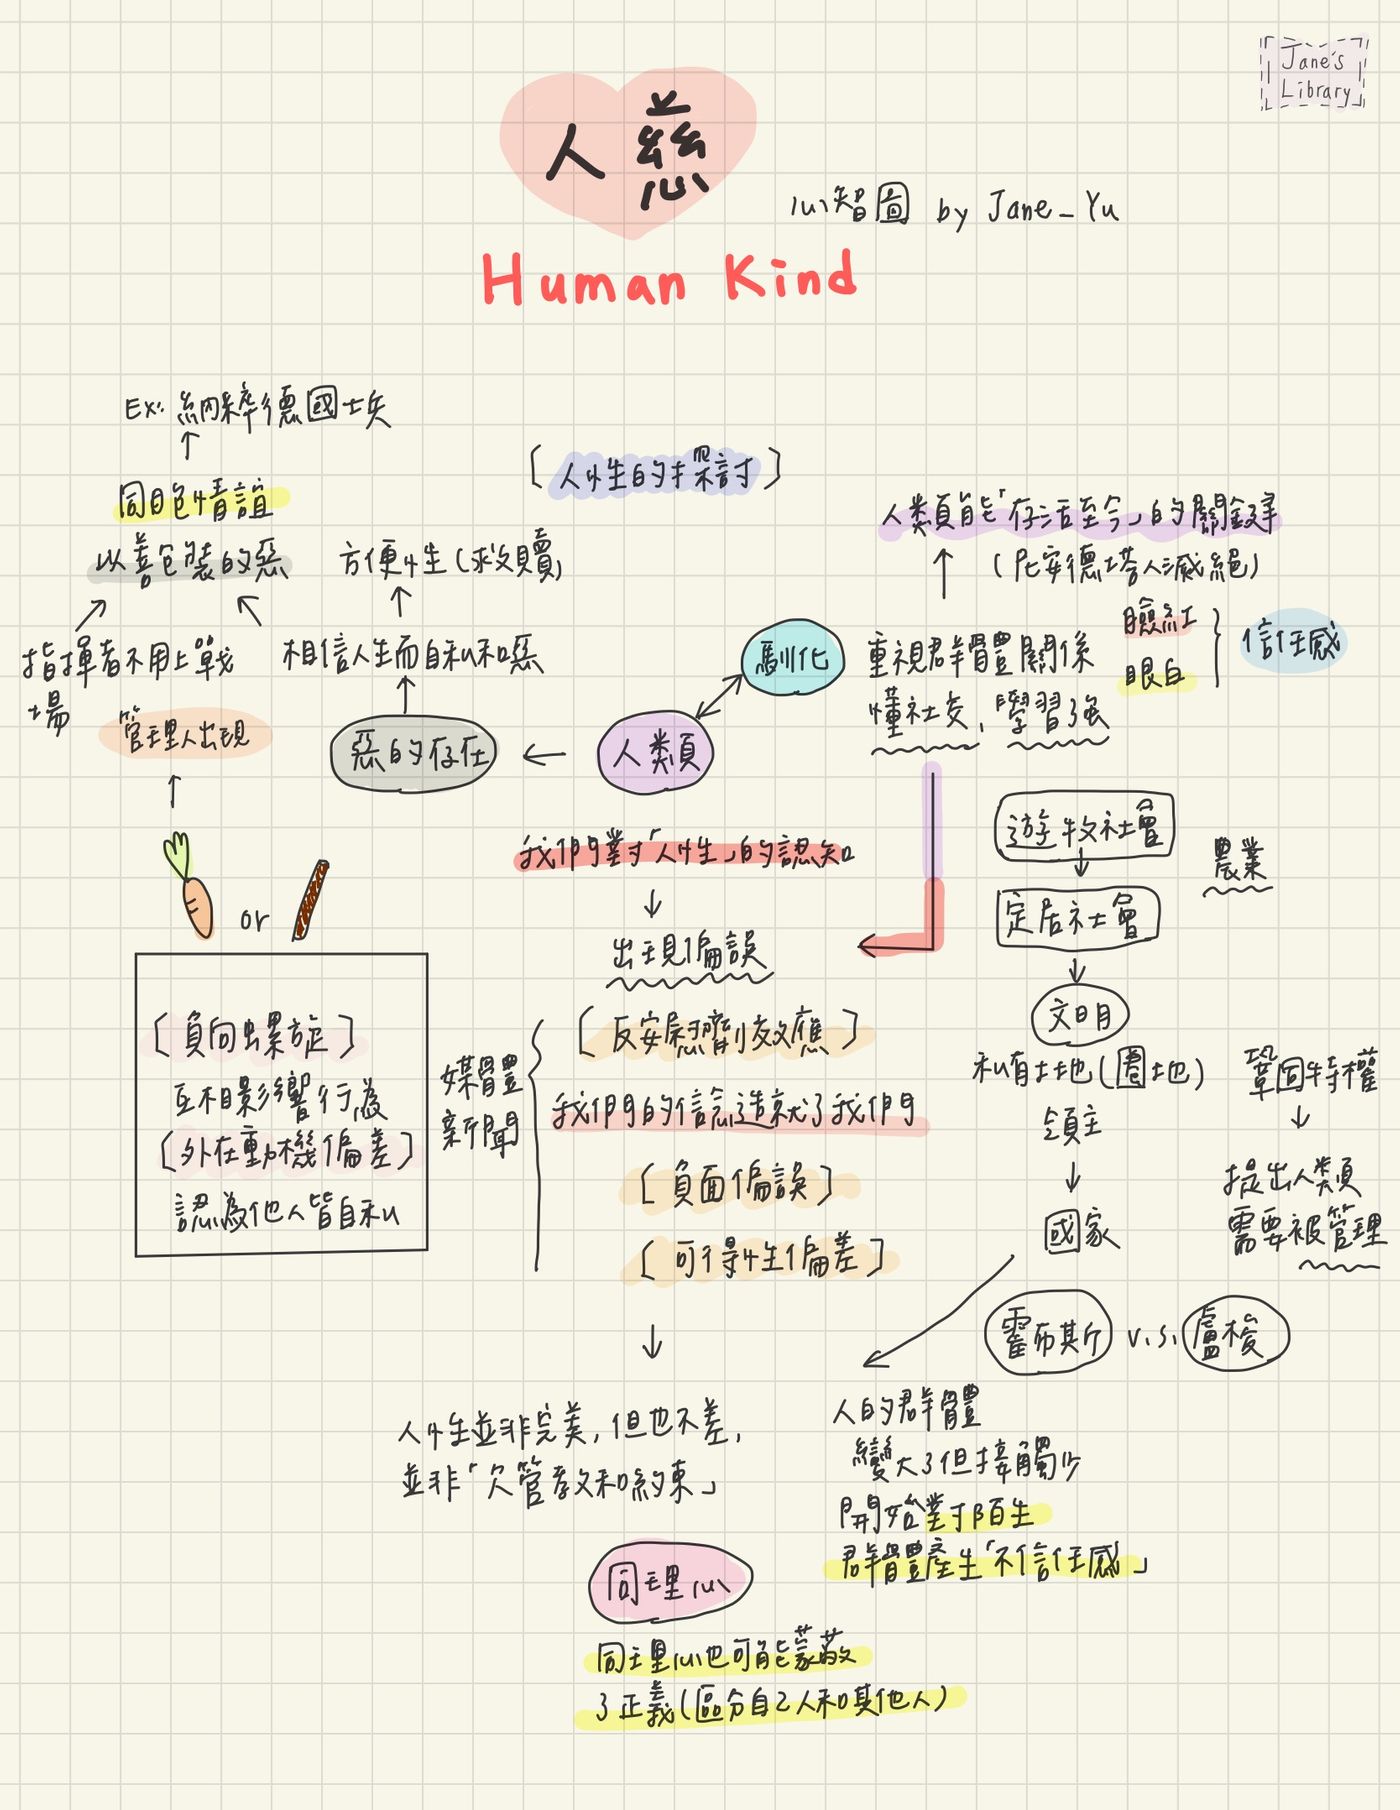 Jane's
Library
人慈
心智圖 by Jane_Yu
Human Kind
Ex: 納粹德國士兵
同袍情誼
以善包裝的惡
指揮者不用上戰
場
方便性(求救贖)
相信人生而自私和惡
惡的存在
管理人出現
or
[負向螺旋]
互相影響行為
[外在動機偏差]
認為他人皆自私
[人性的探討]
人類
馴化
人類能「存活至今」的關鍵
(尼安德塔人滅絕)
重視群體關係
懂社交,學習強
臉紅
眼白
信任感
我們對「人性」的認知
出現偏誤
媒體
新聞
[反安慰劑效應]
我們的信念造就了我們
[負面偏誤]
[可得性偏差]
人性並非完美,但也不差,
並非「欠管教和約束」
遊牧社會
農業
定居社會
文明
私有土地(圈地)
領主
國家
鞏固特權
提出人類
需要被管理
霍布斯 v.s. 盧梭
人的群體
變大了但接觸少
開始對陌生
群體產生「不信任感」
同理心
同理心也可能蒙蔽
了正義(區分自己人和其他人)